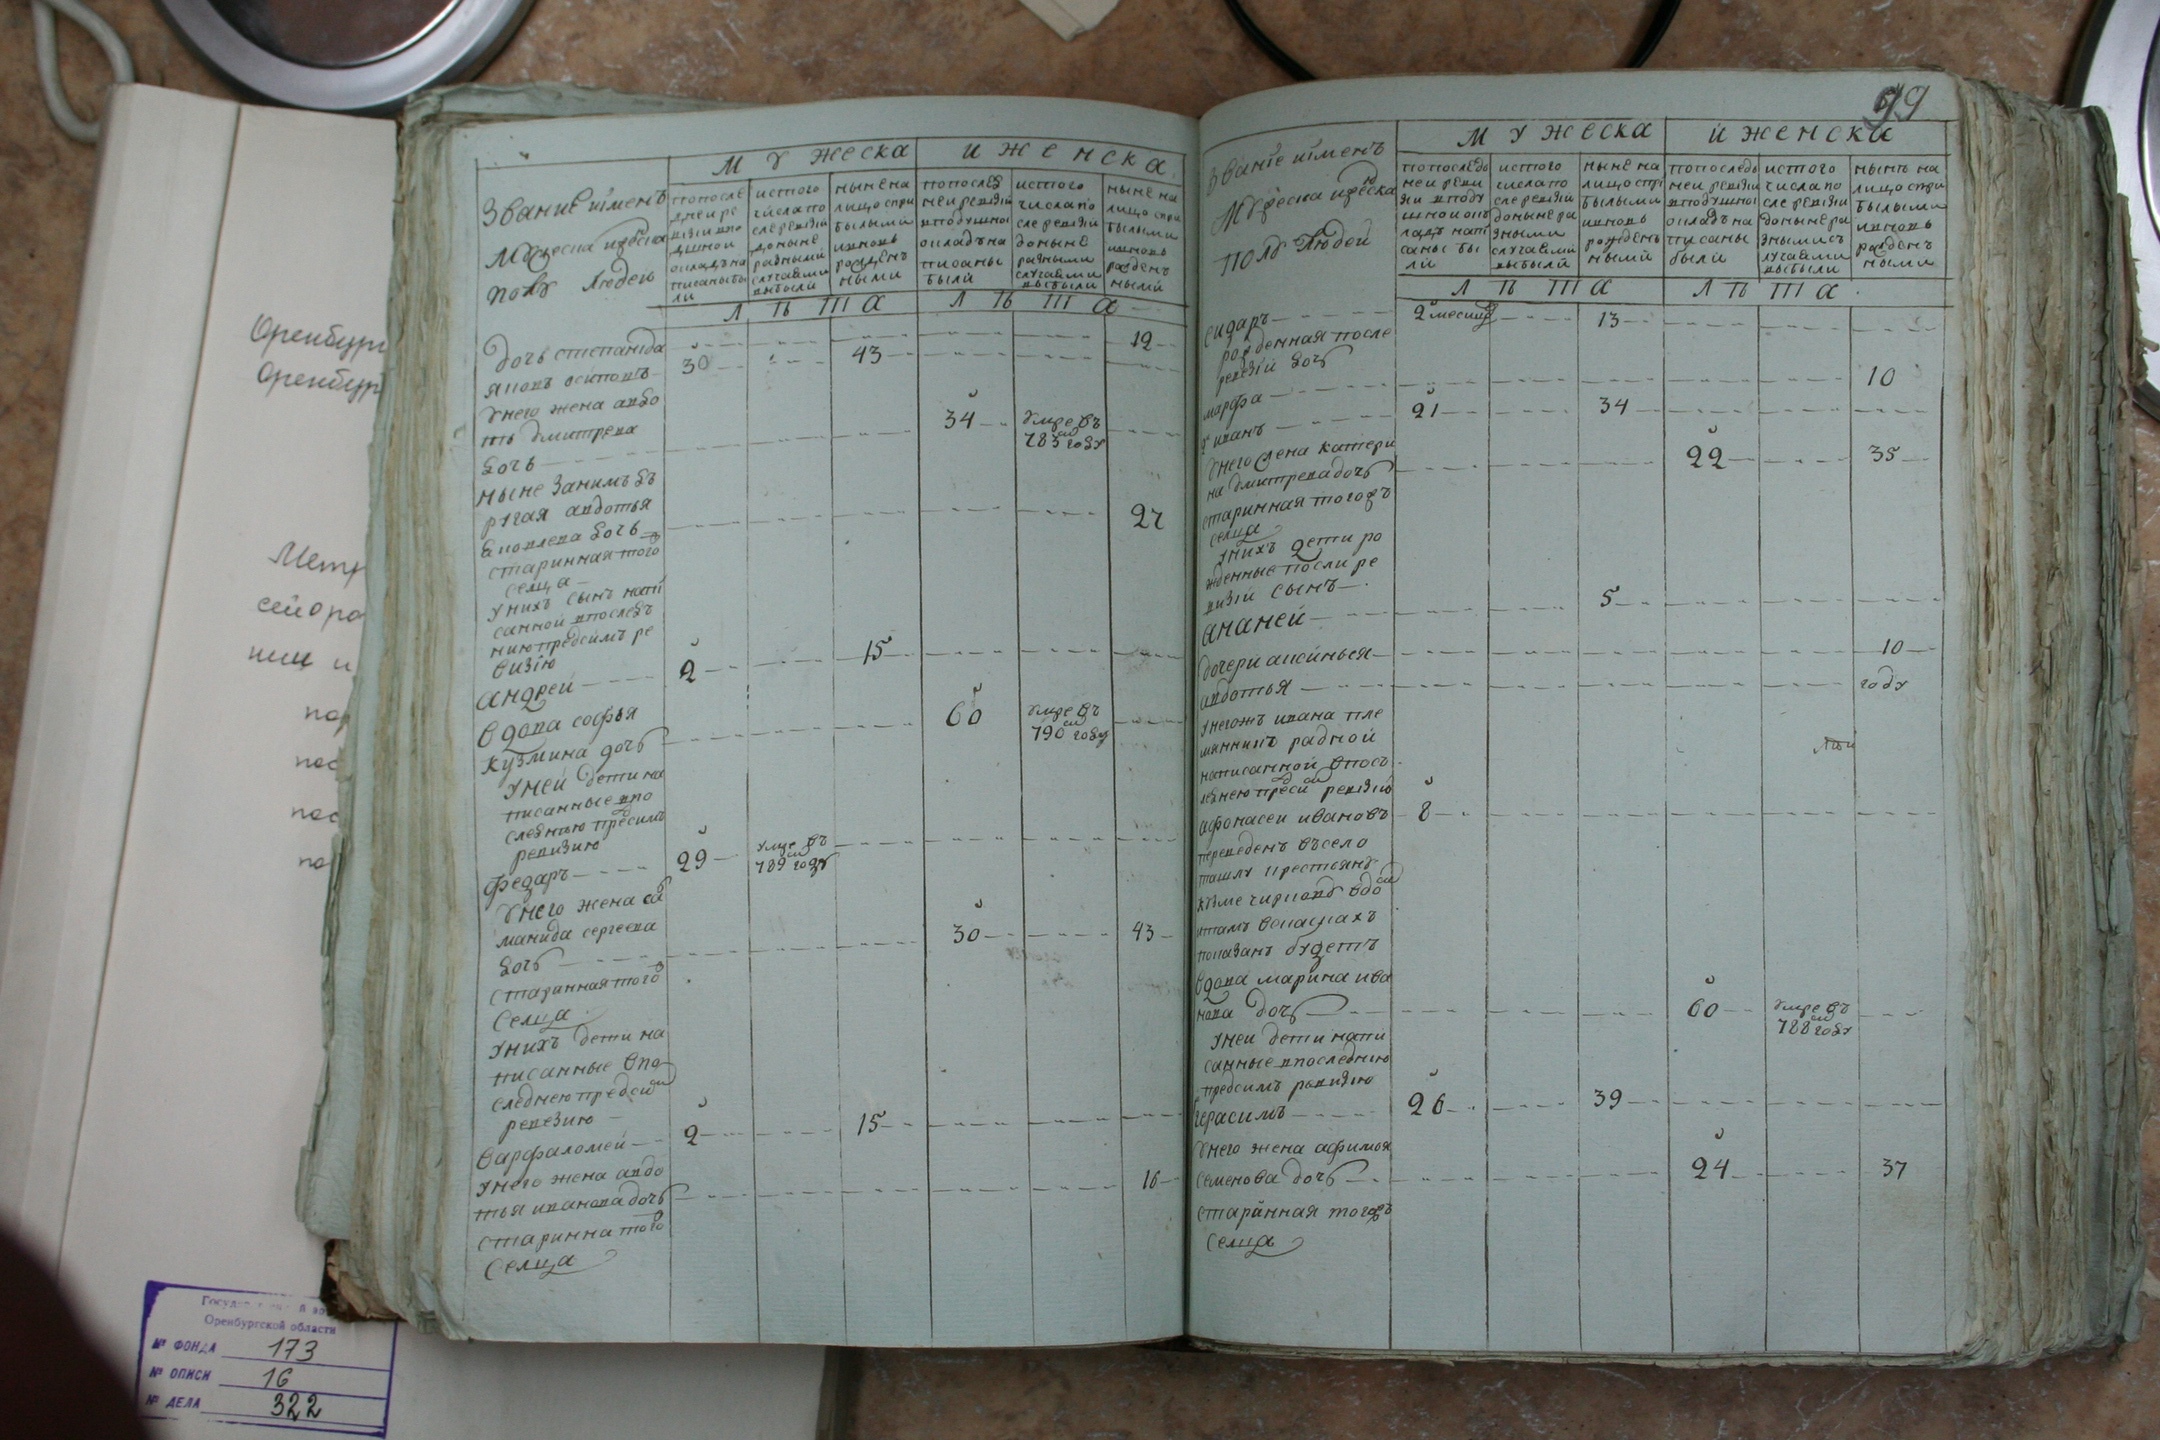 99
МУЖЕСКА
И ЖЕНСКА
Звание имянъ
Мужеска иженска
полу людей
попосле
дней ре
визии впо
душной
окладъ на
писаны бы
ли
истого
числа по
сле ревизий
доныне
разными
случаями
выбыли
ныне на
лицо спри
былыми
ивновь
рожденъ
ными
попослед
ней ревизий
вподушной
окладъ на
писаны
были
истого
числа по
сле ревизий
доныне
разными
случаями
выбыли
ныне на
лицо спри
былыми
ивновь
рожденъ
ными
ЛѢТА
ЛѢТА
дочь степанида 12
яковъ осиповъ 30 43
унего жена авдо
тья дмитрева
дочь 34 умре въ
783м году
ныне занимъ дъ
ругая авдотья
яковлева дочь 27
старинная того
селца
унихъ сынъ напи
санной впослед
нию предсимъ ре
визию
андрей 2 15
вдова софья
кузмина дочь 60 умре въ
790м году
уней дети на
писанные впо
следнию предсимъ
ревизию
федаръ 29 умре въ
789м году
унего жена со
манида сергеева
дочь 30 43
старинная того
селца
унихъ дети на
писанные впо
следнею предсим
ревезию
варфаломей 2 15
унего жена авдо
тья иванова дочь 16
старинна того
селца
МУЖЕСКА
И ЖЕНСКА
Звание имянъ
Мужеска иженска
полу людей
попоследъ
ней реви
зии вподу
шной окъ
ладъ напи
саны бы
ли
истого
числа по
сле ревизий
доныне ра
зными
случаями
выбыли
ныне на
лицо спри
былыми
ивновь
рожденъ
ными
попоследъ
ней ревизий
вподушной
окладъ на
писаны
были
истого
числа по
сле ревизий
доныне ра
зными съ
лучаями
выбыли
нынѣ на
лицо спри
былыми
ивновь
рожденъ
ными
ЛѢТА
ЛѢТА
сидаръ 2 месяцов 13
рожденная после
ревезий дочь
марфа 10
иванъ 21 34
унего жена катери
на дмитрева дочь 22 35
старинная тогожъ
селца
унихъ дети ро
жденные после ре
визий сынъ
ананей 5
дочери аксинья 10
авдотья году
унегожъ ивана пле
мянникъ радной
написанной впосъ
леднею пред сим ревизий
афонасей ивановъ 8
переведенъ въсело
ташлу крестьянъ
показанъ будетъ
вдова марина ива
нова дочь 60 умре въ
788м году
уней дети напи
санные впоследнию
предсимъ ревизию
герасимъ 26 39
унего жена афимья
семенова дочь 24 37
старинная тогожъ
селца
Оренбург
Оренбург
Метр
сейора
нии и
по
пос
пос
по
Оренбургской области
№ ФОНДА 173
№ ОПИСИ 16
№ ДЕЛА 322